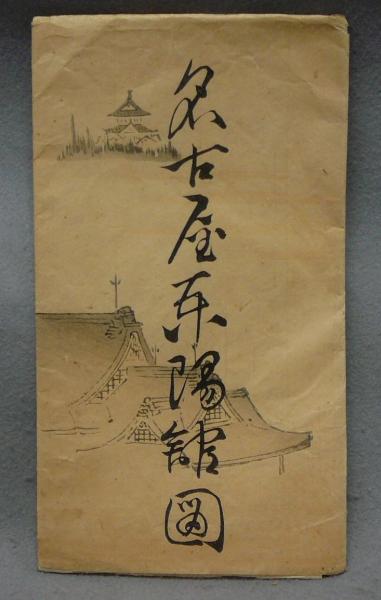 名古屋東陽館圖